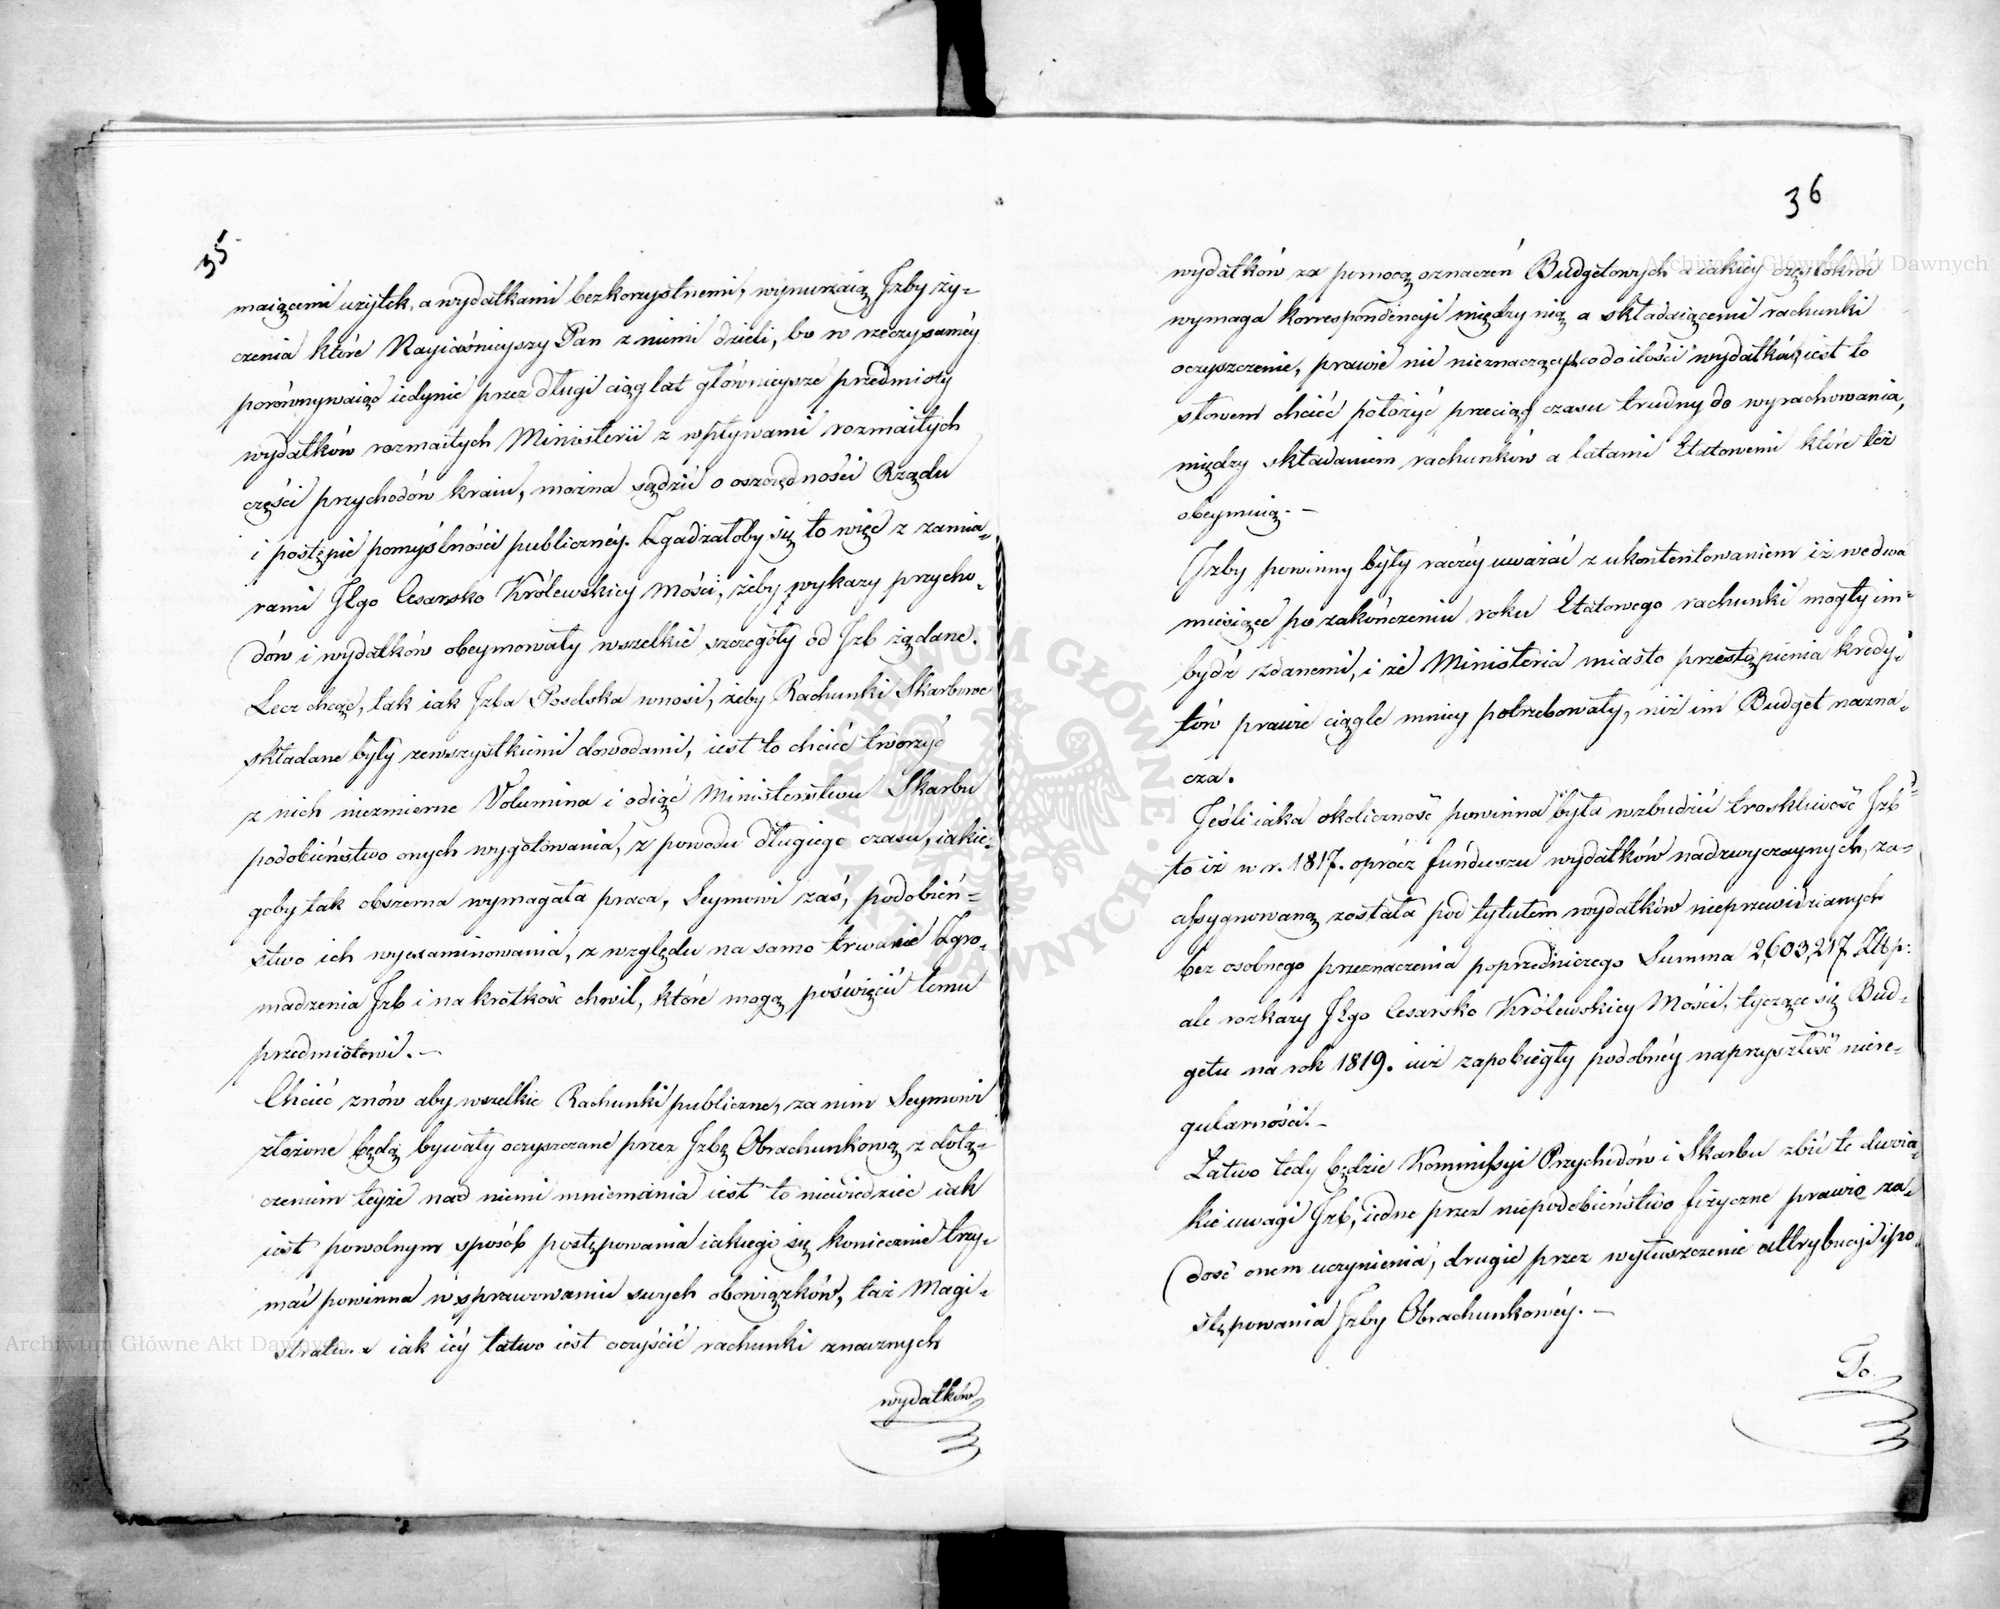 35
maiącemi użytek, a wydatkami bezkorzystnemi, wynurzaią Jzby ży-
czenia które Nayiaśnieyszy Pan z niemi dzieli, bo w rzeczysaméy
porównywaiąc iedynie przez długi ciąg lat główniejsze przedmioty
wydatków rozmaitych Ministerii z wpływami rozmaitych
części przychodów kraiu, można sądzić o oszczędności Rządu
i postępie pomyślności publicznéy. Zgadzałoby się to więc z zamia-
rami JEgo Cesarsko Królewskiey Mości, żeby wykazy przycho-
dów i wydatków obeymowały wszelkie szczegóły od Jzb żądane.
Lecz chcąc, tak iak Jzba Poselska wnosi, żeby Rachunki Skarbowe
składane były zewszystkiemi dowodami, iest to chcieć tworzyć
z nich niezmierne Volumina i odiąć Ministerstwu Skarbu
podobieństwo onych wygotowania, z powodu długiego czasu, iakie-
goby tak obszerna wymagała praca, Seymowi zaś, podobień-
stwo ich wyexaminowania, z względu na samo trwanie Zgro-
madzenia Jzb i na krótkość chwil, które mogą poświęcić temu
przedmiotowi. —
Chcieć znów aby wszelkie Rachunki publiczne, za nim Seymowi
złożone będą bywały oczyszczane przez Jzbę Obrachunkową z dołą-
czeniem teyże nad niemi mniemania iest to niewiedzieć iak
iest powolnym sposób postępowania iakiego się koniecznie trzy-
mać powinna w sprawowaniu swych obowiązków, taż Magi-
stratura iak iéy łatwo iest oczyścić rachunki znacznych
wydatków
36
wydatków za pomocą oznaczeń Budgetowych a iakiey częstokroć
wymaga korrespondencyi między nią a składaiącemi rachunki
oczyszczenie, prawie nic nieznaczących co do ilości wydatków, iest to
słowem chcieć położyć przeciąg czasu trudny do wyrachowania,
między składaniem rachunków a latami Etatowemi które też
obeymuią. —
Jzby powinny były raczéy uważać z ukontentowaniem iż we dwa
miesiące po zakończeniu roku Etatowego rachunki mogły im
bydź zdanemi, i że Ministeria miasto przestąpienia kredy-
tów prawie ciągle mniey potrzebowały, niż im Budget nazna-
cza.
Jeśli iaka okoliczność powinna była wzbudzić troskliwość Jzb
to iż w r. 1817. oprócz funduszu wydatków nadzwyczaynych, za-
assygnowaną została pod tytułem wydatków nieprzewidzianych
bez osobnego przeznaczenia poprzedniczego Summa 2,603,217 Złtp:
ale rozkazy JEgo Cesarsko Królewskiey Mości, tyczące się Bud-
getu na rok 1819. iuż zapobiegły podobnéy naprzyszłość niere-
gularności. —
Łatwo tedy będzie Kommissyi Przychodów i Skarbu zbić te dwoia-
kie uwagi Jzb, iedne przez niepodobieństwo fizyczne prawie za-
dość onem uczynienia, drugie przez wyłuszczenie attrybucyi i po-
stępowania Jzby Obrachunkowéy. —
To